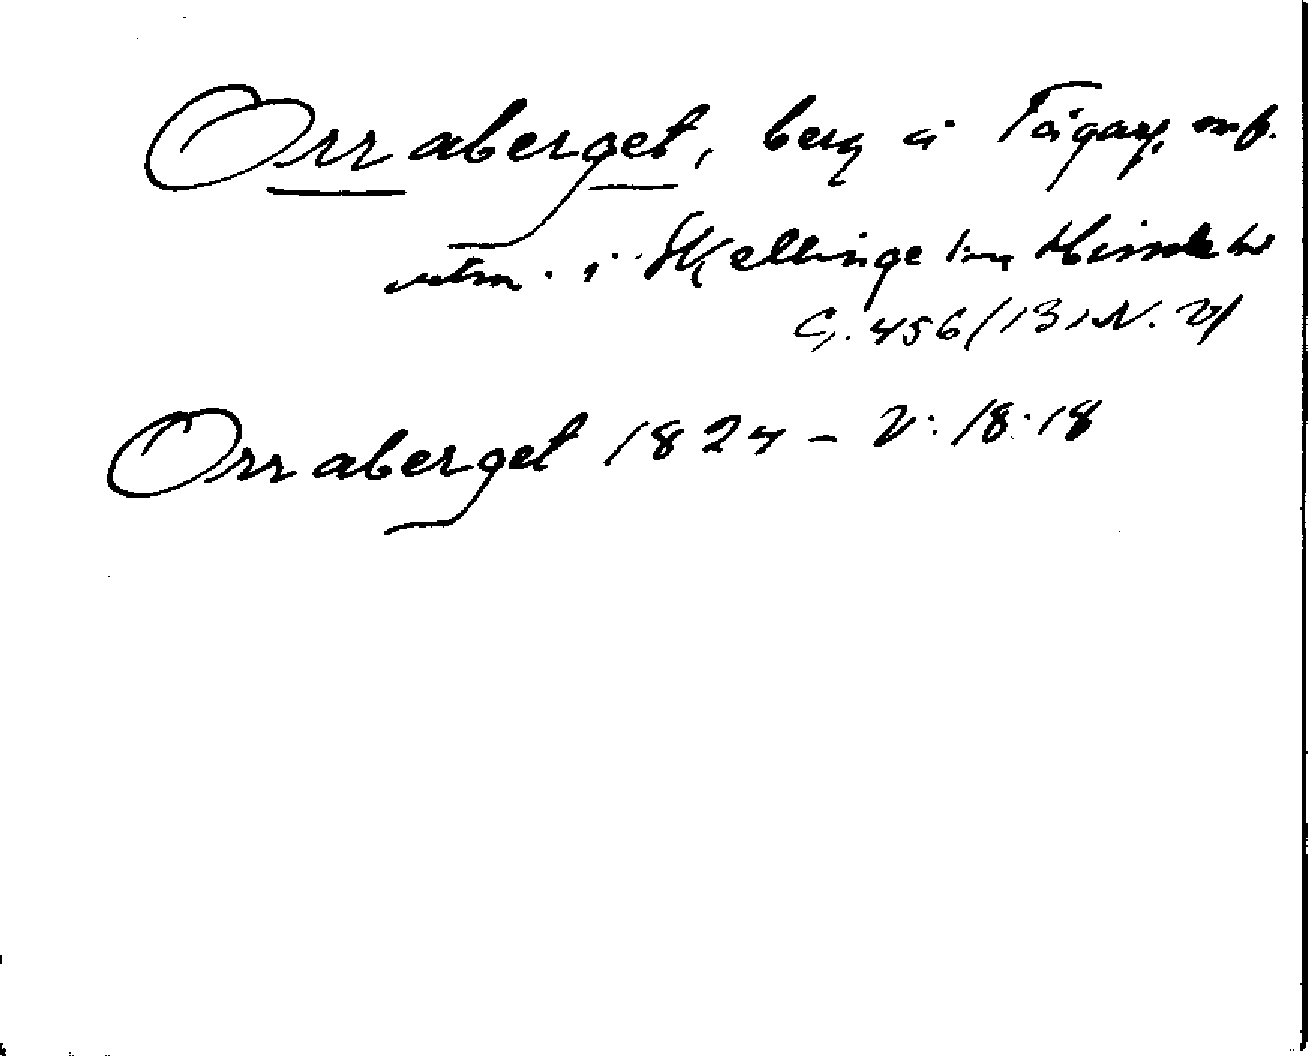 Orraberget, berg å Tågarp, mf.
utm. i Skellinge sn, Himle hd
G. 456/13, N. 21
Orraberget 1824 – V: 18:18